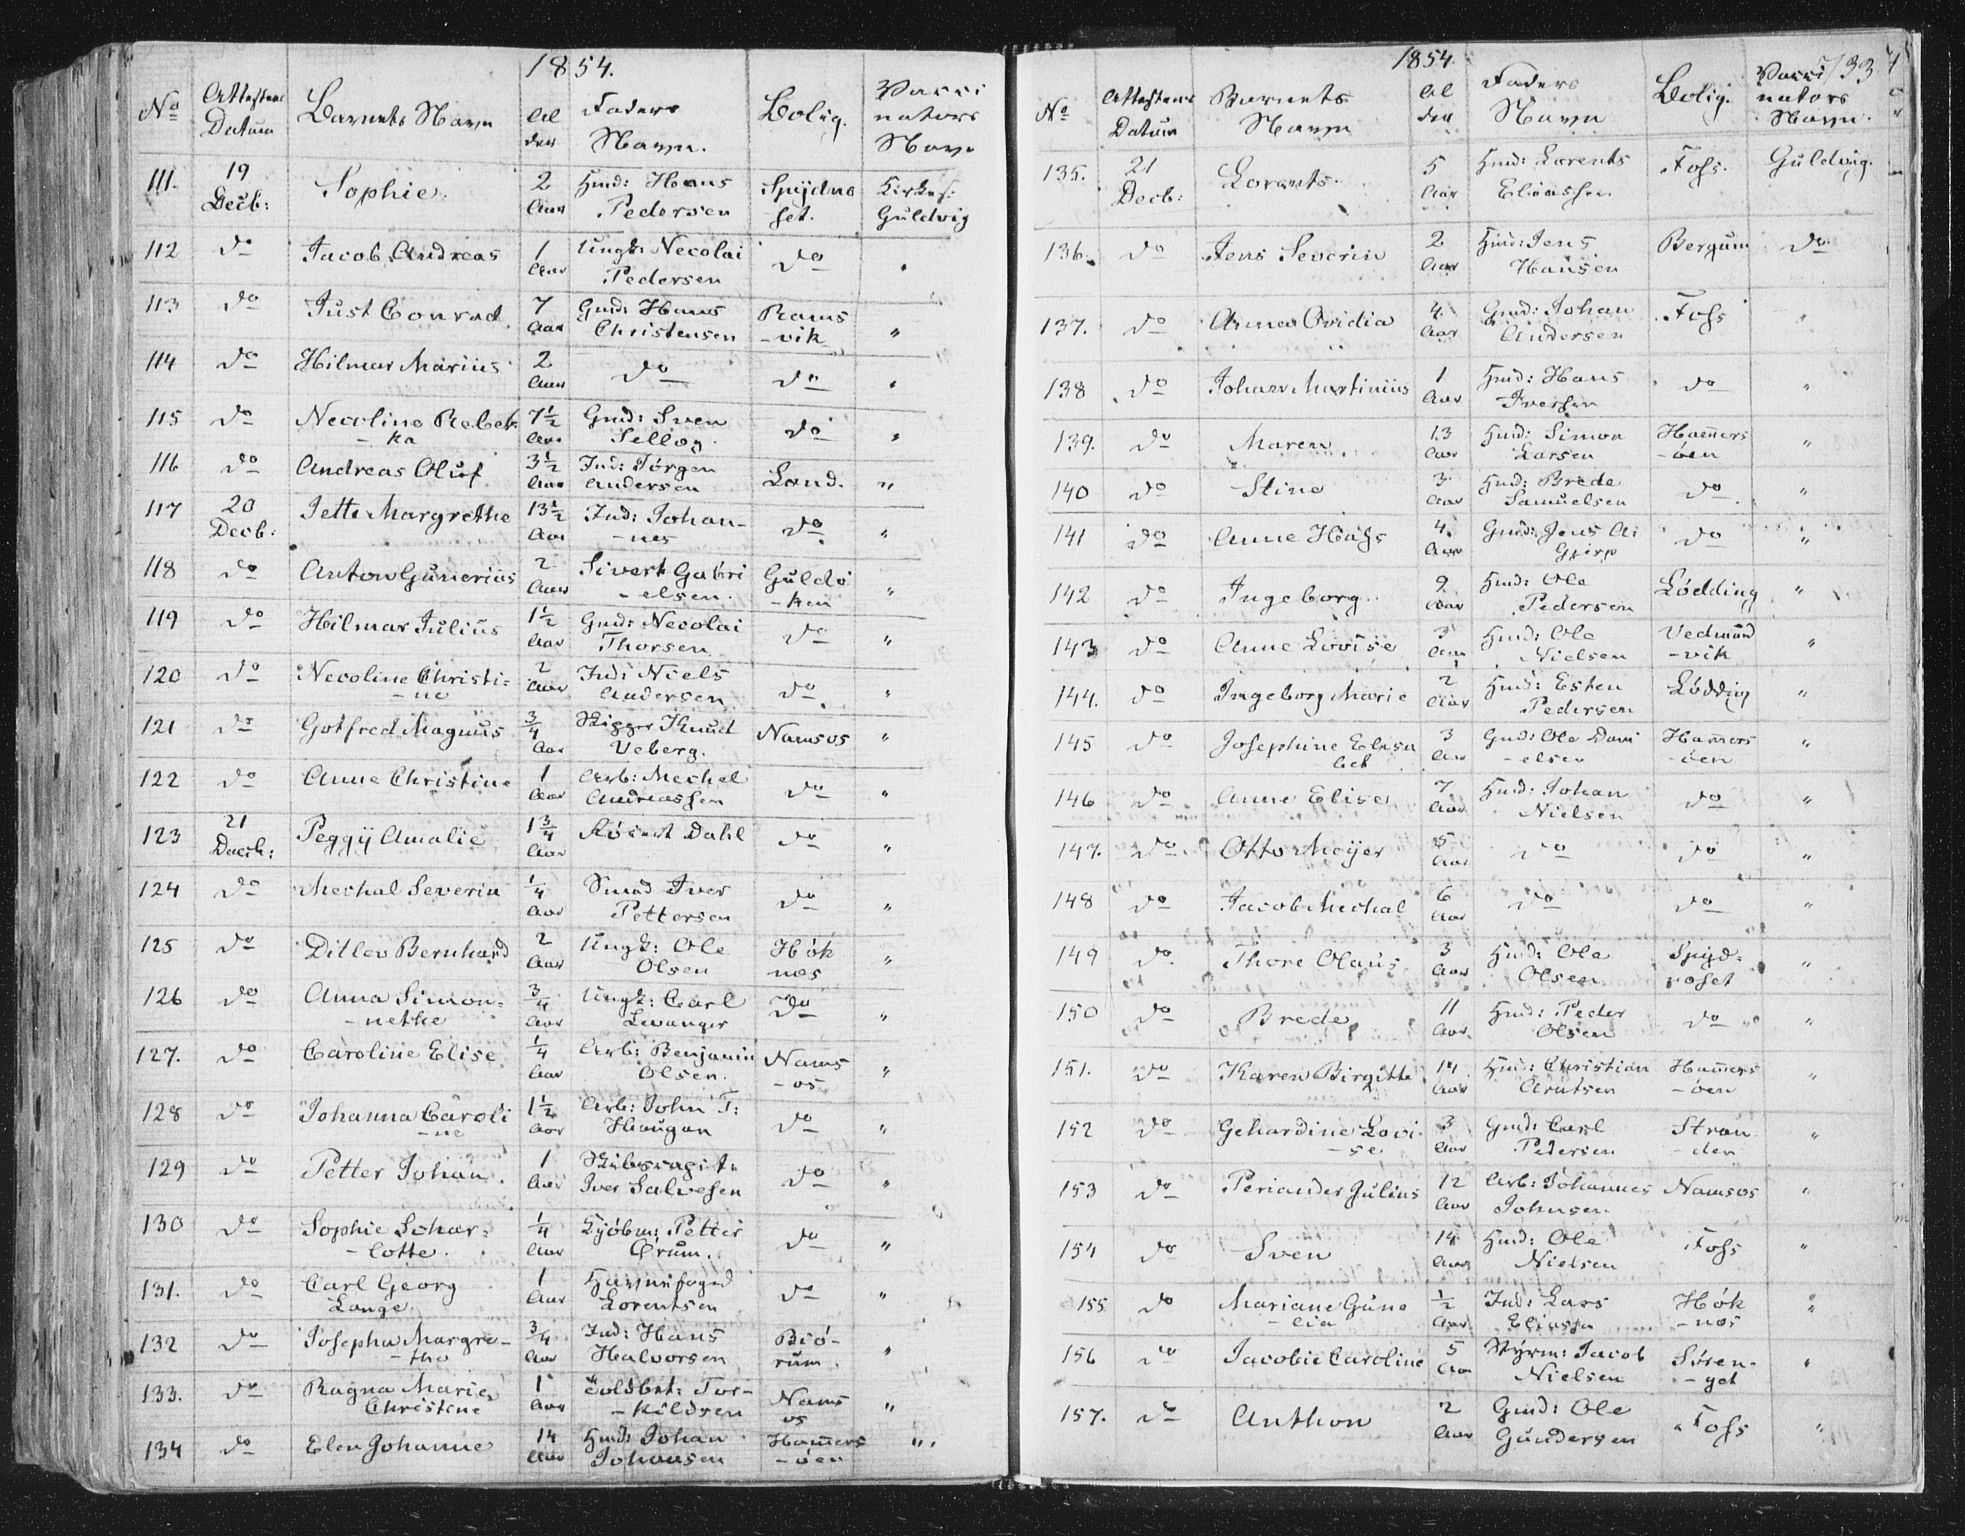 1854.
No Attestens Datum Barnets Navn Al der Faders Navn. Bolig. Vacci nators Navn
111. 19 Decb: Sophie. 2 Aar Hmd: Hans Pedersen Spydna set. Kirkes: Guldvig
112 do Jacob Andreas 1 Aar Ungk: Necolai Pedersen do "
113 do Just Conrad 7 Aar Gmd: Hans Christensen Rams -vik "
114 do Hilmar Marius 2 Aar do do "
115 do Necoline Rebek -ka 7½ Aar Gmd: Sven Sellæg. do "
116 do Andreas Oluf 3½ Aar Ind: Jørgen Andersen Land. "
117 20 Decb: Jette Margrethe 13½ Aar Ind: Johan- -nes do "
118 do Anton Gunerius 2 Aar Sivert Gabri -elsen. Guldvi -ken "
119 do Hilmar Julius 1½ Aar Gmd: Necolai Thorsen do "
120 do Necoline Christi= -ne 2 Aar Ind: Niels Andersen do "
121 do Gotfred Magnus ¾ Aar Knud Veberg. Namsos "
122 do Anne Christine 1 Aar Arb: Mechal Andreassen do "
123 21 Decb: Peggy Amalie 1¾ Aar Dahl do "
124 do Mechal Severin ¼ Aar Smed Iver Pettersen do "
125 do Ditlev Bernhard 2 Aar Ungk: Ole Olsen Høk nes "
126 do Anna Simon= -nethe ¾ Aar Ungk: Carl Levanger do "
127. do Caroline Elise ¼ Aar Arb: Benjamin Olsen. Nams -os "
128 do Johanna Caroli -ne 1½ Aar Arb: John T: Haugan do "
129 do Petter Johan. 1 Aar Iver Salvesen do "
130 do Sophie Schar= -lotte. ¼ Aar Kjøbm: Petter Ørum. do "
131. do Carl Georg Lange. 1 Aar Havnefoged Lorentsen do "
132 do Josepha Margre- -the ¾ Aar Ind: Hans Halvorsen Bjø- rum. "
133. do Ragna Marie Christine 1 Aar Toldbet: Tor- -kildsen Nams os "
134 do Elen Johanne 14 Aar Hmd: Johan Johansen Ham̄ers -øen "
1854. 733
No Attestens Datum Barnets Navn Al der Faders Navn Bolig. Vacci nators Navn.
135. 21 Decb: Lorents. 5 Aar Hmd: Lorents Eliassen Foss. Guldvig.
136. do Jens Severin 2 Aar Hmd: Jens Hansen Bergum do
137. do Anna Ovidia 4 Aar Gmd: Johan Andersen Foss "
138 do Johan Martinius 1 Aar Hmd: Hans Iversen do "
139. do Maren 13 Aar Hmd: Simon Larsen Ham̄ers -øen "
140 do Stine 3 Aar Hmd: Brede Samuelsen do "
141 do Anne 4. Aar Gmd: Jens A: do "
142 do Ingeborg. 9 Aar Hmd: Ole Pedersen Lødding "
143 do Anne Lovise 3 Aar Hmd: Ole Nielsen Vedmund -vik "
144. do Ingeborg Marie 2 Aar Hmd: Esten Pedersen Lødding "
145 do Josephine Elisa bet 3 Aar Gmd: Ole Dani -elsen Ham̄ers -øen "
146 do Anne Elise 7 Aar Hmd: Johan Nielsen do "
147. do Otto Meyer 5 Aar do do "
148 do Jacob Mechal 6 Aar do do "
149 do Thore Olaus 3 Aar Hmd: Ole Olsen Spyd= noset "
150 do Brede 11 Aar Hmd: Peder Olsen do "
151. do Karen Birgitte 14 Aar Hmd: Christian Arntsen Ham̄ers -øen "
152 do Gehardine Lovi -se 3 Aar Gmd: Carl Pedersen Stran -den "
153 do Periander Julius 12 Aar Arb: Johannes Johnsen Namsos "
154 do Sven 14 Aar Hmd: Ole Nielsen Foss "
155 do Mariane Gune -lia ½ Aar Ind: Lars Eliassen Høk -nes "
156 do Jacobie Caroline 5 Aar Styrm: Jacob Nielsen Søren- -get "
157. do Anthon 2 Aar Gmd: Ole Gundersen Foss "